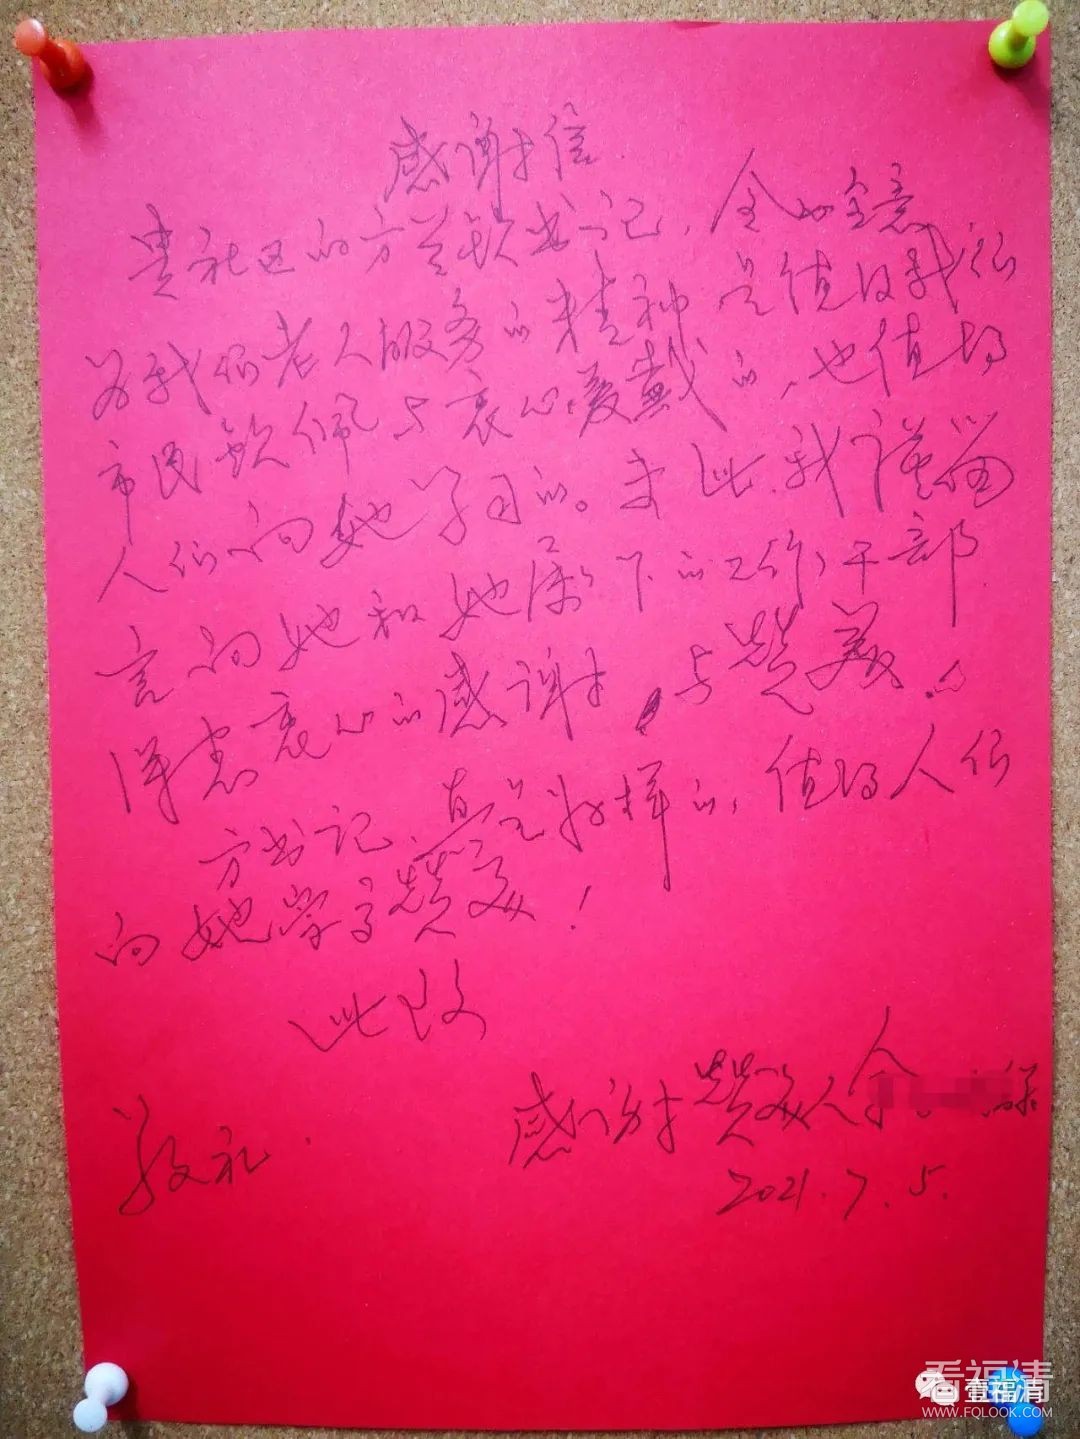 感谢信
贵社区的方兰钦书记，全心全意
为我们老人服务的精神是值得我们
市民钦佩与衷心爱戴的，也值得
人们向她学习的。在此，我谨留
言向她和她属下的工作干部
深表衷心的感谢，与赞美！
方书记，真是好样的，值得人们
向她学习赞美！
此致
敬礼
感谢赞美人余
2021.7.5.
看福清
壹福清
WWW.FQLOOK.COM